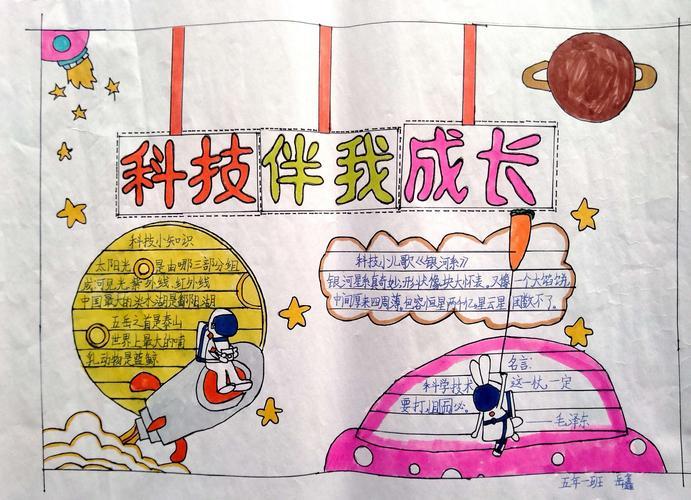 科技伴我成长
科技小知识
太阳光是由哪三部分组
成可见光.紫外线.红外线
中国最大的淡水湖是鄱阳湖
五岳之首是泰山
世界上最大的哺
乳动物是蓝鲸
科技小儿歌《银河系》
银河星系真奇妙,形状像块大怀表。又像一个大馅饼,
中间厚来四周薄。包容恒星两千亿,星云星团数不了。
名言:
科学技术这一仗,一定
要打,且必
——毛泽东
五年一班 岳鑫